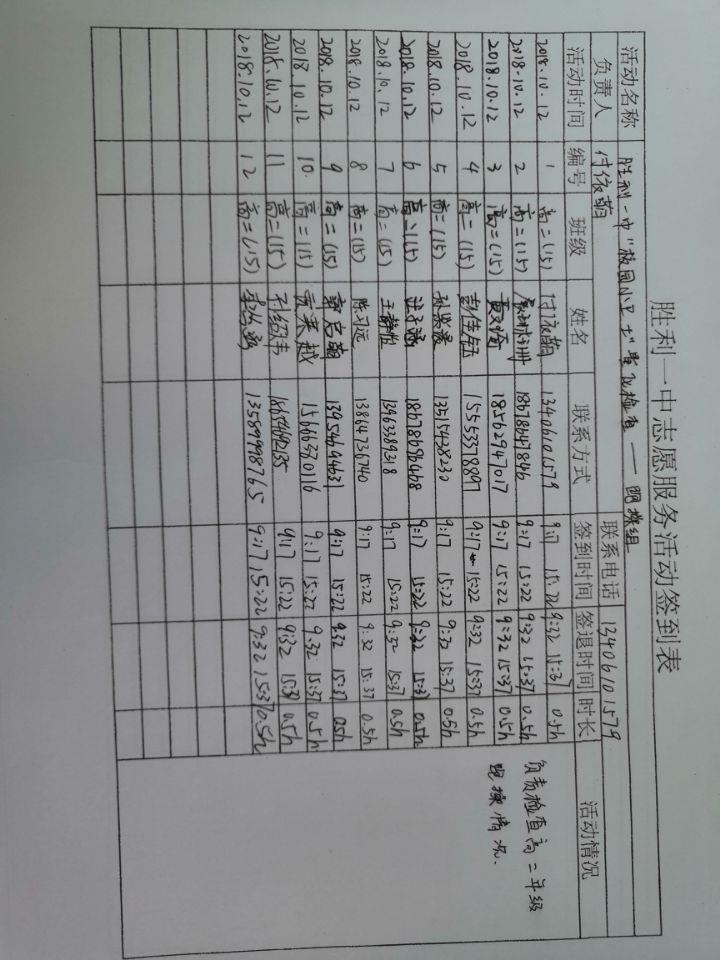 胜利一中志愿服务活动签到表
活动名称 胜利一中"校园小卫士"常规检查——跑操组
负责人 付依萌 联系电话 13406101579
活动时间 编号 班级 姓名 联系方式 签到时间 签退时间 时长 活动情况
2018.10.12 1 高二(15) 付依萌 13406101579 9:17 15:22 9:32 15:37 0.5h 负责检查高二年级
2018.10.12 2 高二(15) 18678647846 9:17 15:22 9:32 15:37 0.5h 跑操情况.
2018.10.12 3 高二(15) 18562947017 9:17 15:22 9:32 15:37 0.5h
2018.10.12 4 高二(15) 彭佳钰 15553378897 9:17 15:22 9:32 15:37 0.5h
2018.10.12 5 高二(15) 13515428230 9:17 15:22 9:32 15:37 0.5h
2018.10.12 6 高二(15) 汪子涵 18678696468 9:17 15:22 9:32 15:37 0.5h
2018.10.12 7 高二(15) 王静怡 13963389318 9:17 15:22 9:32 15:37 0.5h
2018.10.12 8 高二(15) 陈习远 13864736740 9:17 15:22 9:32 15:37 0.5h
2018.10.12 9 高二(15) 郭启翰 13954694631 9:17 15:22 9:32 15:37 0.5h
2018.10.12 10. 高二(15) 贾莱越 15666370116 9:17 15:22 9:32 15:37 0.5h
2018.10.12 11 高二(15) 孙绍沣 18654692135 9:17 15:22 9:32 15:37 0.5h
2018.10.12 12 高二(15) 13589998765 9:17 15:22 9:32 15:37 0.5h